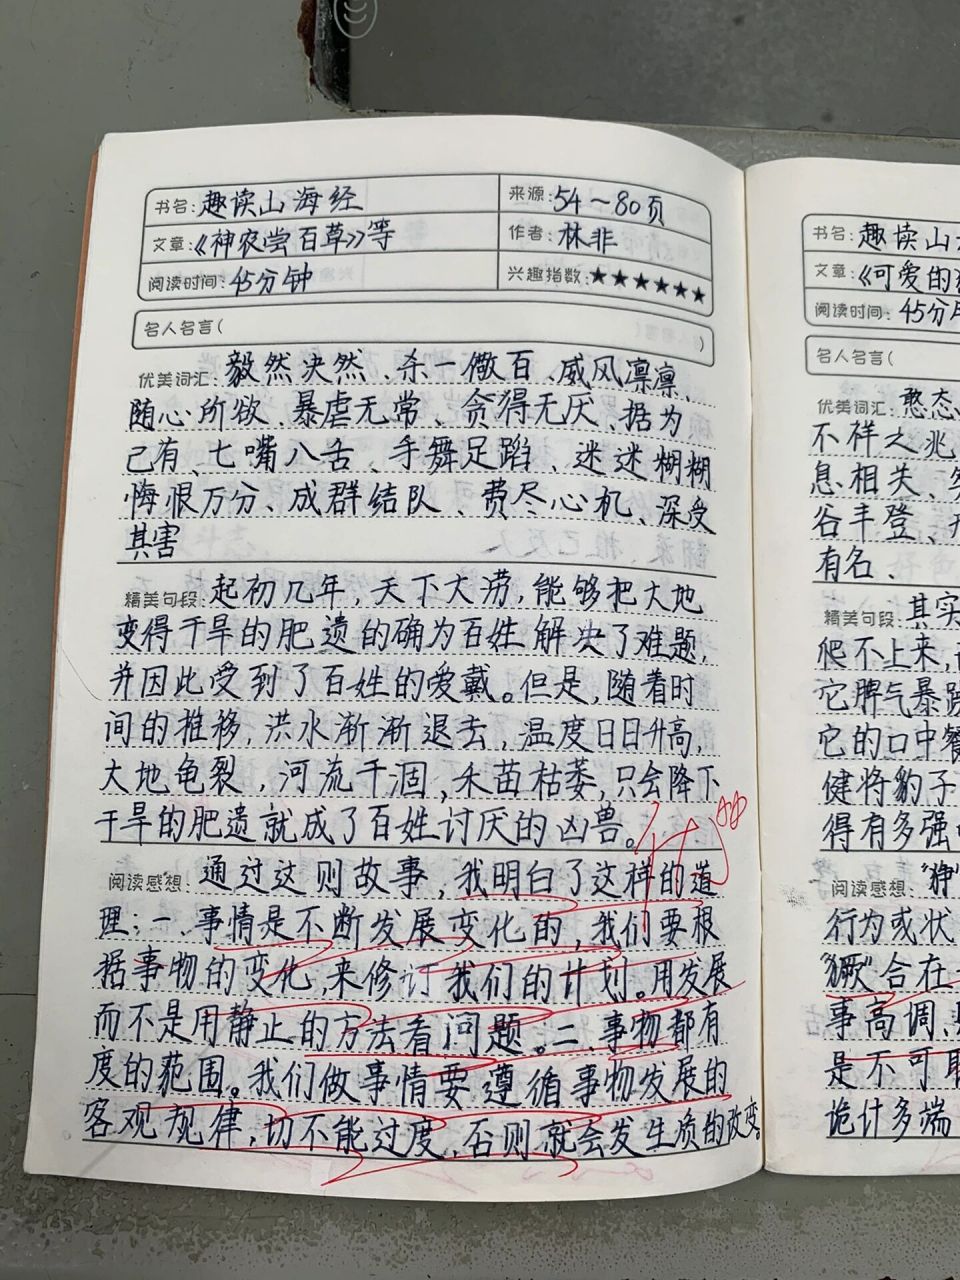 书名:趣读山海经
来源:54~80页
文章:《神农尝百草》等
作者:林非
阅读时间:45分钟
兴趣指数:★★★★★★
名人名言( )
优美词汇:毅然决然、杀一儆百、威风凛凛、
随心所欲、暴虐无常、贪得无厌、据为
己有、七嘴八舌、手舞足蹈、迷迷糊糊
悔恨万分、成群结队、费尽心机、深受
其害
精美句段:起初几年,天下大涝,能够把大地
变得干旱的肥遗的确为百姓解决了难题,
并因此受到了百姓的爱戴。但是,随着时
间的推移,洪水渐渐退去,温度日日升高,
大地龟裂,河流干涸,禾苗枯萎,只会降下
干旱的肥遗就成了百姓讨厌的凶兽。
阅读感想:通过这则故事,我明白了这样的道
理:一、事情是不断发展变化的,我们要根
据事物的变化,来修订我们的计划。用发展
而不是用静止的方法看问题。二、事物都有
度的范围。我们做事情要遵循事物发展的
客观规律,切不能过度,否则就会发生质的改变。
书名:趣读山
文章:《可爱的
阅读时间:45分
名人名言(
优美词汇:憨态
不祥之兆
息相失、
谷丰登、
有名、
精美句段:其实
爬不上来,
它脾气暴躁
它的口中餐
健将豹子
得有多强
阅读感想:"狰"
行为或状
"獗"合在一
事高调、
是不可取
诡计多端